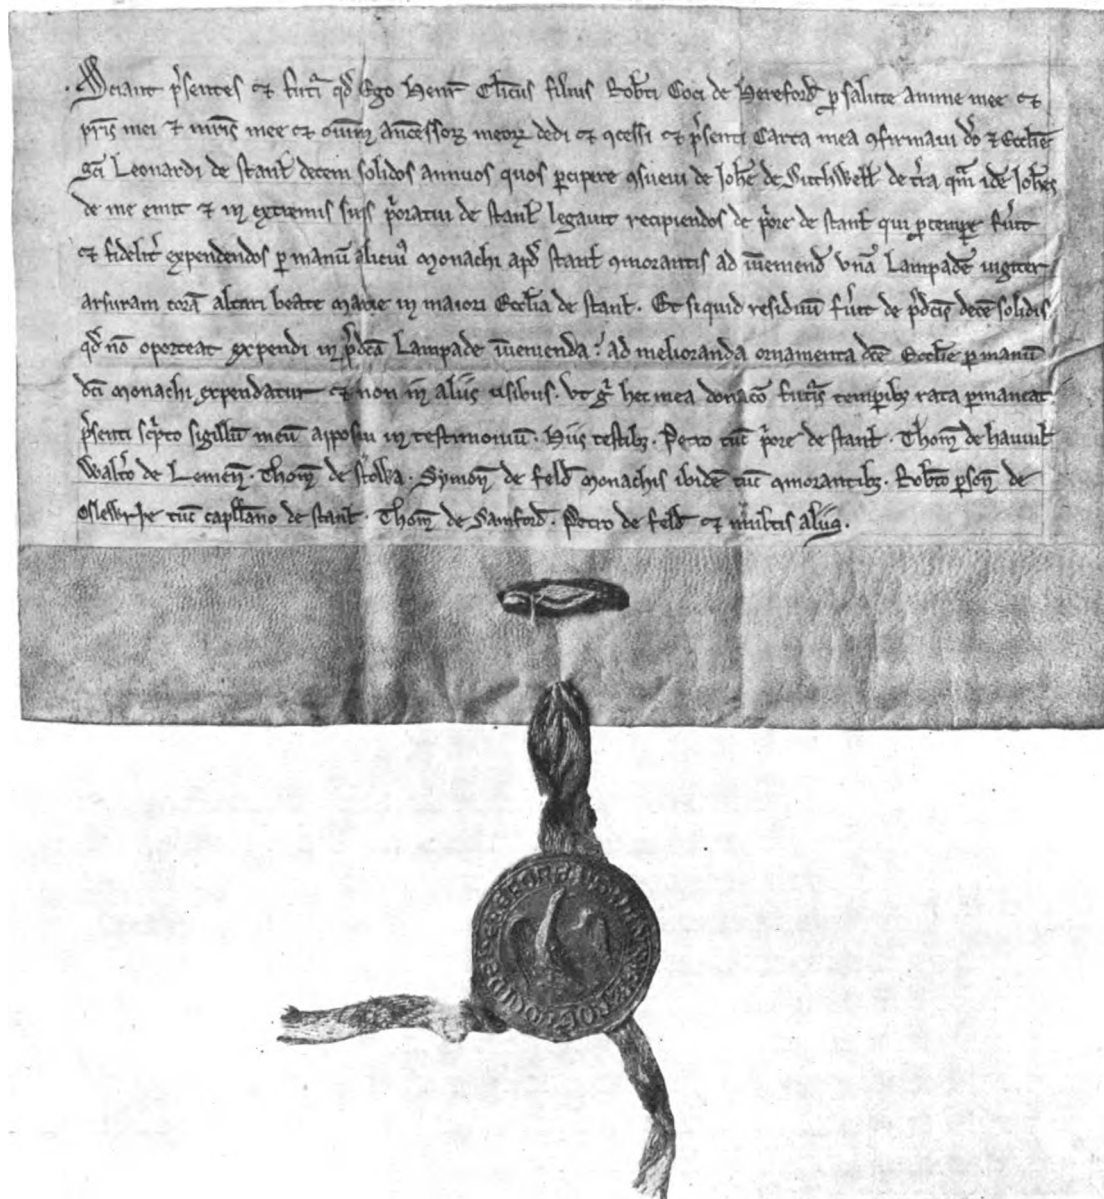 Sciant p'sentes et fut'i qd Ego Henr' Cl'icus filius Rob'ti Coci de Hereford' p salute anime mee et
pris mei et mris mee et omium ancessorz meorz dedi et concessi et p'senti Carta mea confirmavi do et Ecclie
sci Leonardi de stanl' decem solidos annuos quos p'cipere consuevi de Iohe de de t'ra qm ide Iohes
de me emit et in extremis suis p'oratui de stanl' legavit recipiendos de p'ore de stanl' qui p tempe fu'it
et fidelit' expendendos p manu alicui' monachi apd' stanl' commorantis ad inveniend' una Lampade iugiter
arsuram cora altari beate marie in maiori Ecclia de stanl'. Et siquid residuu fu'it de p'dcis dece solidis
qd no oporteat expendi in p'dca Lampade invenienda: ad melioranda ornamenta dce Ecclie p manu
dci monachi expendatur et non in aliis usibus. Ut g' hec mea donaco futuris temp'ibz rata p'maneat
p'senti sc'pto sigillu meu apposui in testimoniu. Hiis testibz. Petro tuc p'ore de stanl'. Thom' de
Walt'o de Lemen'. Thom' de stowa. Symon' de feld' monachis ibide tuc commorantibz. Rob'to p'son' de
tuc capellano de stanl'. Thom' de Samford'. Petro de feld' et multis aliis.